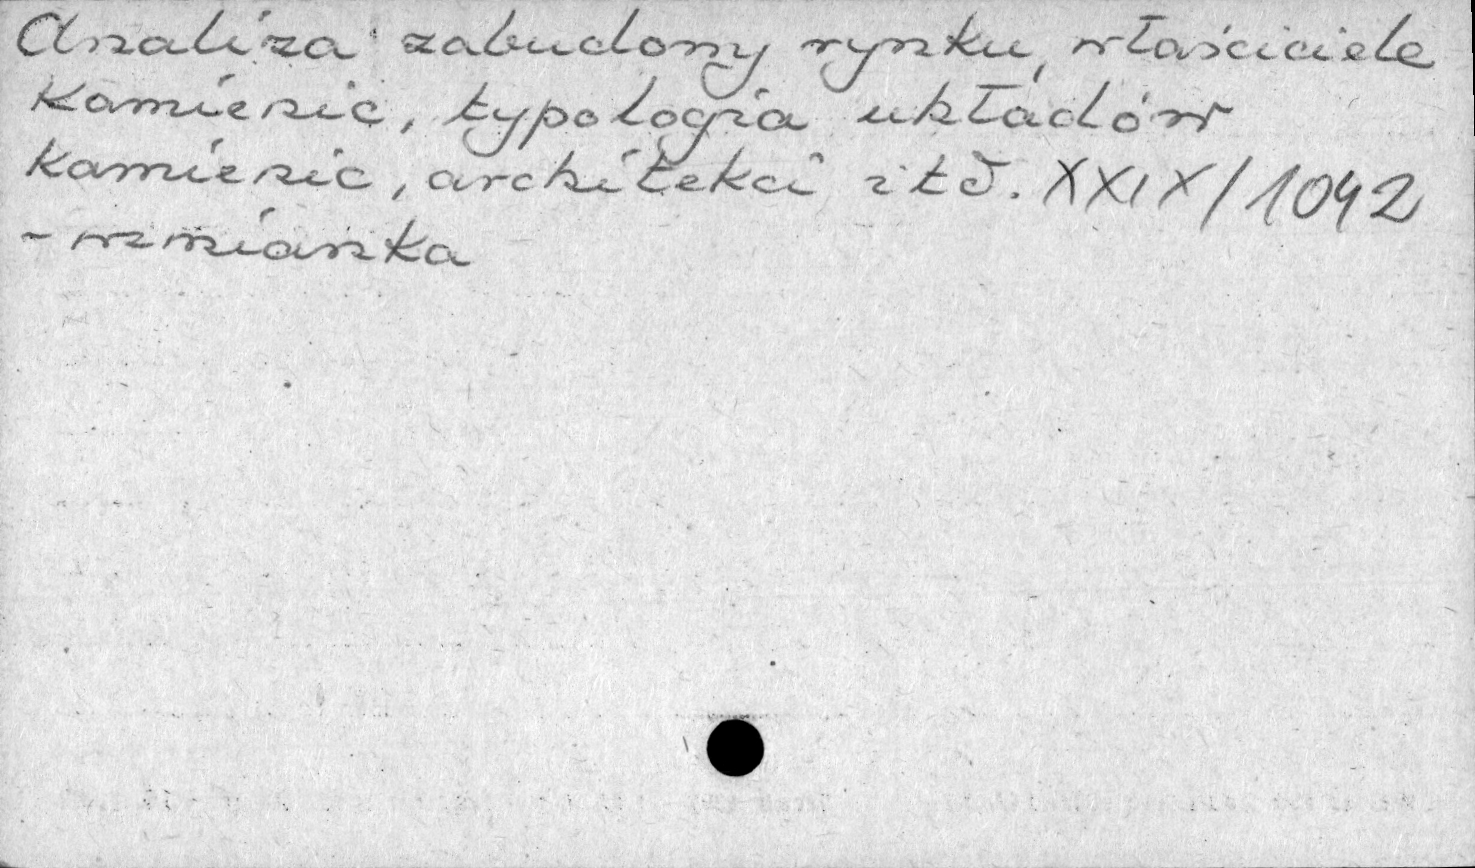 Analiza zabudowy rynku, właściciele
kamienic, typologia układów
kamienic, architekci itd. XXIX/1092
- wzmianka